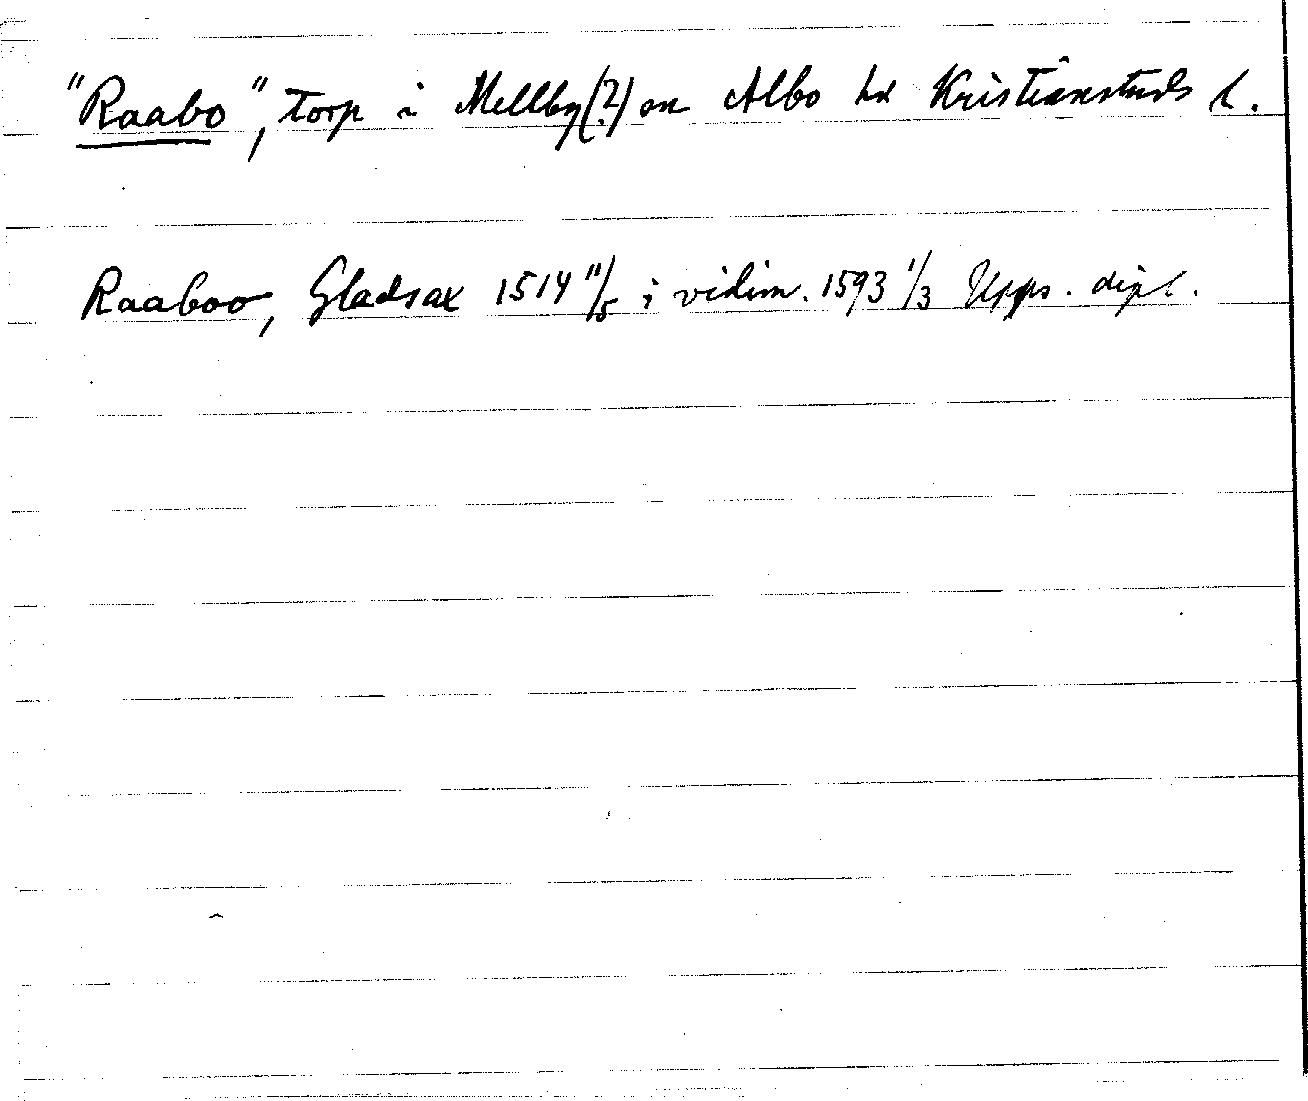 "Raabo", torp i Mellby(?) sn Albo hd Kristianstads l.
Raaboo, Gladsax 1514 11/5 i vidim. 1593 1/3 Upps. dipl.